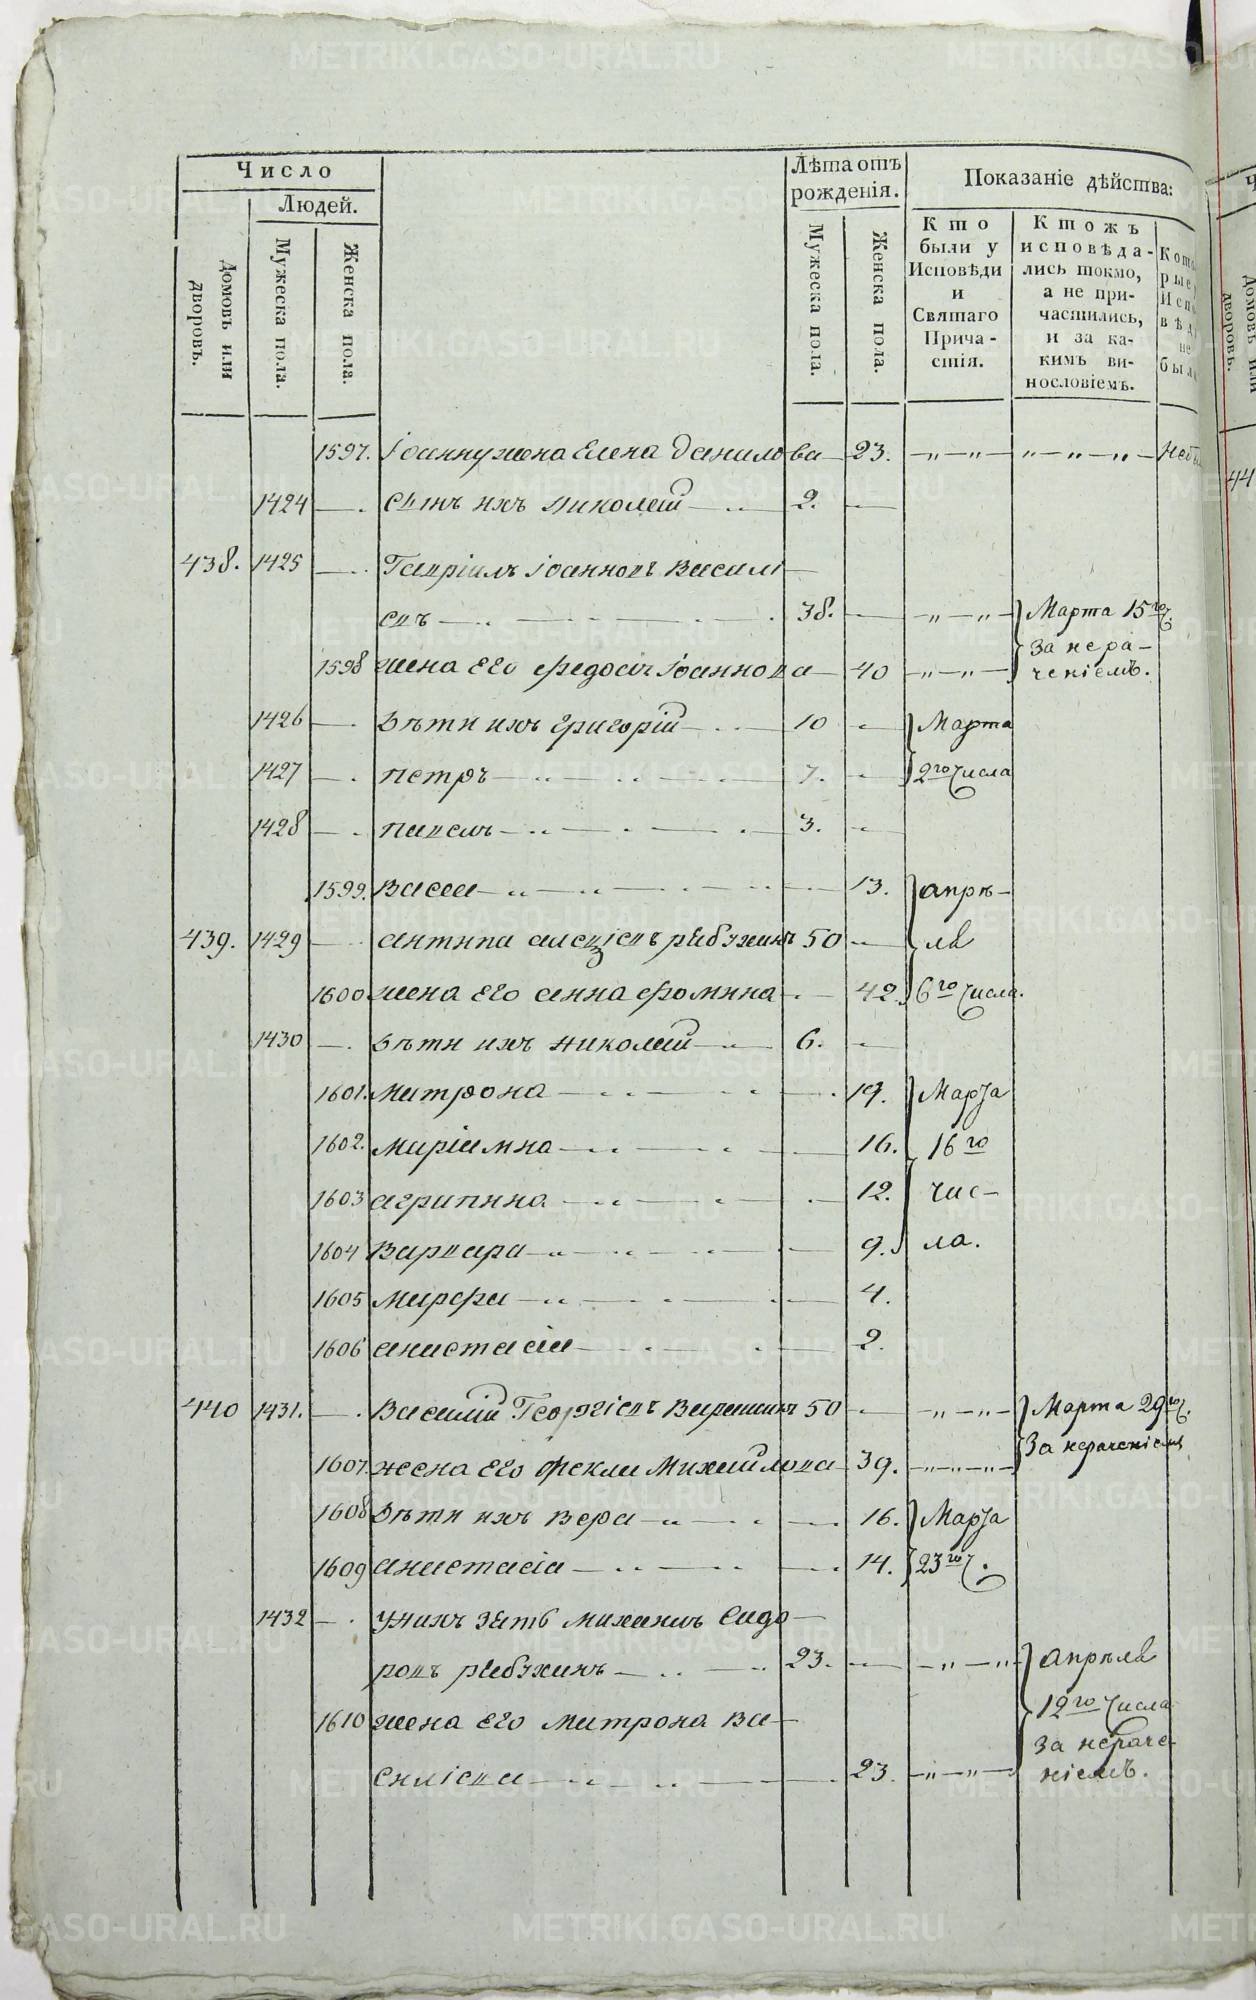 Число
Людей.
Домовъ или дворовъ.
Мужеска пола.
Женска пола.
Лѣта отъ рожденія.
Мужеска пола.
Женска пола.
Показаніе дѣйства:
Кто были у Исповѣди и Святаго Прича-стія.
Ктожъ исповѣда-лись токмо, а не при-частились, и за ка-кимъ ви-нословіемъ.
1597. Іоанну жена Елена Данилова 23.
1424 сынъ ихъ Николай 2.
438. 1425 Гавріилъ Іоанновъ Василі
евъ 38. Марта 15го ч.
за нера-
1598 жена его Федосія Іоаннова 40 ченіемъ.
1426 Дѣти ихъ Григорій 10 Марта
1427 Петръ 7. 2го числа
1428 Павелъ 3.
1599. Васса 13. Апрѣ-
439. 1429 Антипа Алеѯіевъ Рябухинъ 50 ля
1600 жена его Анна Фомина 42. 6го числа.
1430 Дѣти ихъ Николай 6.
1601. Матрона 19. Марта
1602. Маріамна 16. 16го
1603 Агрипина 12. чис-
1604 Варвара 9. ла.
1605 Марфа 4.
1606 Анастасіа 2.
440 1431. Василій Георгіевъ 50 Марта 29го ч.
за нераченіемъ
1607. жена его Фекла Михайлова 39.
1608 Дѣти ихъ Вера 16. Марта
1609 Анастасіа 14. 23го ч.
1432 У нихъ зять Михаилъ Сидо
ровъ Рябухинъ 23. Апрѣля
1610 жена его Матрона Ва- 12го числа
за нераче-
силіева 23. ніемъ.
METRIKI.GASO-URAL.RU